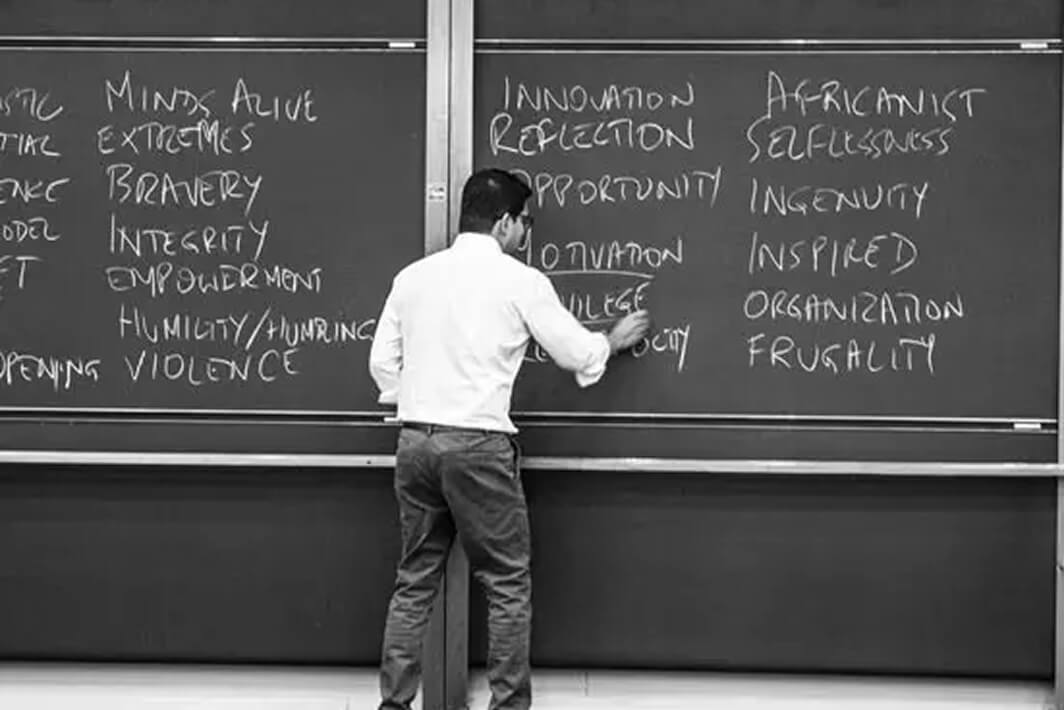 STIC
TIAL
ENCE
ODEL
ET
OPENING
MINDS ALIVE
EXTREMES
BRAVERY
INTEGRITY
EMPOWERMENT
HUMILITY/HUMBLING
VIOLENCE
INNOVATION
REFLECTION
OPPORTUNITY
MOTIVATION
VILEGE
OCITY
AFRICANIST
SELFLESSNESS
INGENUITY
INSPIRED
ORGANIZATION
FRUGALITY